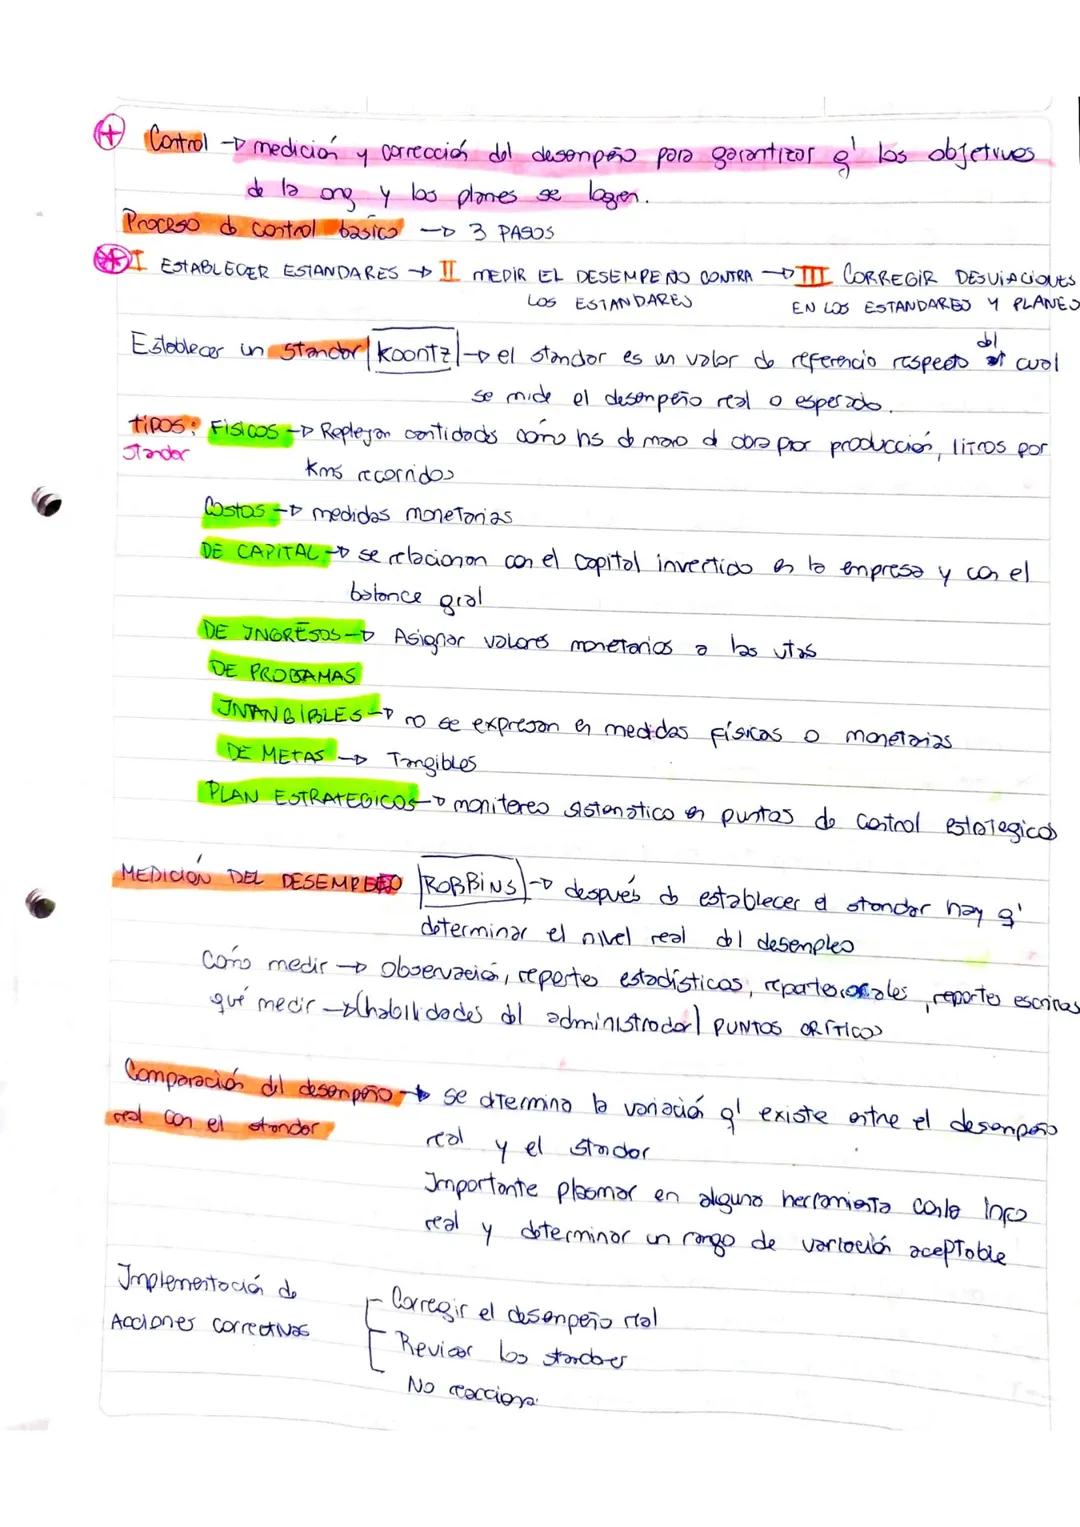 Control → medición y corrección del desempeño para garantizar q' los objetivos
de la org y los planes se logren.
Proceso de control básico → 3 PASOS
I ESTABLECER ESTANDARES → II MEDIR EL DESEMPEÑO CONTRA → III CORREGIR DESVIACIONES
LOS ESTANDARES EN LOS ESTANDARES Y PLANES
Establecer un standar | KOONTZ | → el standar es un valor de referencia respecto del cual
se mide el desempeño real o esperado.
tipos: FISICOS → Reflejan cantidades como hs de mano de obra por producción, litros por
Standar kms recorridos
Costos → medidas monetarias
DE CAPITAL → se relacionan con el capital invertido en la empresa y con el
balance gral
DE INGRESOS → Asignar valores monetarios a las vtas
DE PROGAMAS
INTANGIBLES → no se expresan en medidas físicas o monetarias
DE METAS → Tangibles
PLAN ESTRATEGICOS → monitereo sistemático en puntos de control estrategicos
MEDICIÓN DEL DESEMPEÑO | ROBBINS | → después de establecer el standar hay q'
determinar el nivel real del desempleo
Como medir → Observación, reportes estadísticos, reportes orales, reportes escritos
qué medir → (habilidades del administrador) PUNTOS CRÍTICOS
Comparación del desempeño → se dtermina la variación q' existe entre el desempeño
real con el standar real y el standar
Importante plasmar en alguna herramienta con la info
real y determinar un rango de variación aceptable
Implementación de Corregir el desempeño real
Acciones correctivas Revisar los standares
No reacciona